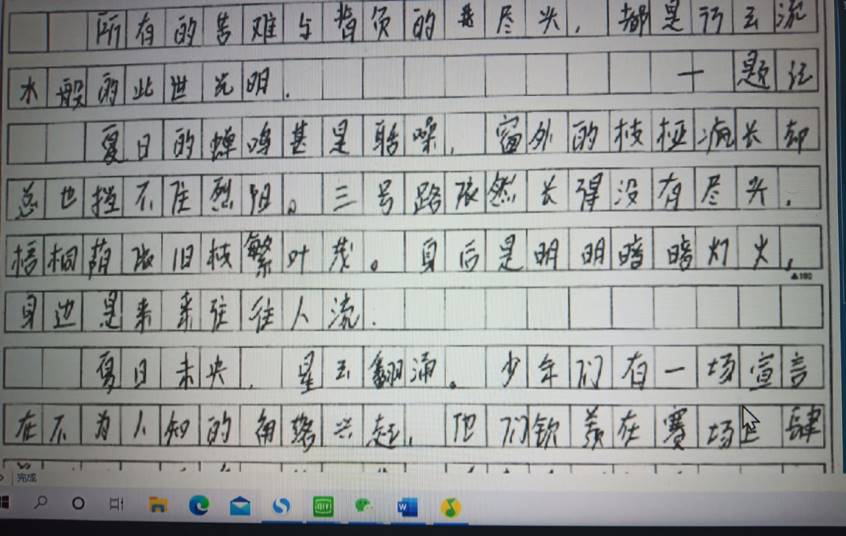 所有的苦难与背负的尽头，都是行云流
水般的此世光明．
一题记
夏日的蝉鸣甚是聒噪，窗外的枝桠疯长却
总也挡不住烈阳。三号路依然长得没有尽头，
梧桐荫依旧枝繁叶茂。身后是明明暗暗灯火，
▲180
身边是来来往往人流．
夏日未央，星云翻涌。少年们有一场宣言
在不为人知的角落兴起，他们钦羡在赛场上肆
完成